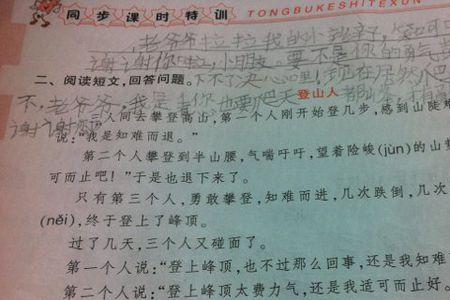 同步课时特训
TONGBUKESHITEXUN
,老爷爷拉拉我的小
谢谢你啦,小朋友。要不是你的勇气
二、阅读短文,回答问题。下不了决心呐!现在居然
不,老爷爷,我是看你也要爬天都峰,才有
谢谢你
登山人
三人同去攀登高山,第一个人刚开始登几步,感到山陡难
说:“我是知难而退。”
第二个人攀登到半山腰,气喘吁吁,望着险峻(jùn)的山
可而止吧!”于是也退下来了。
只有第三个人,勇敢攀登,知难而进,几次跌倒,几次
(něi),终于登上了峰顶。
过了几天,三个人又碰面了。
第一个人说:“登上峰顶,也不过那么回事,还是我知难
第二个人说:“登上峰顶太费力气,还是我适可而止好。